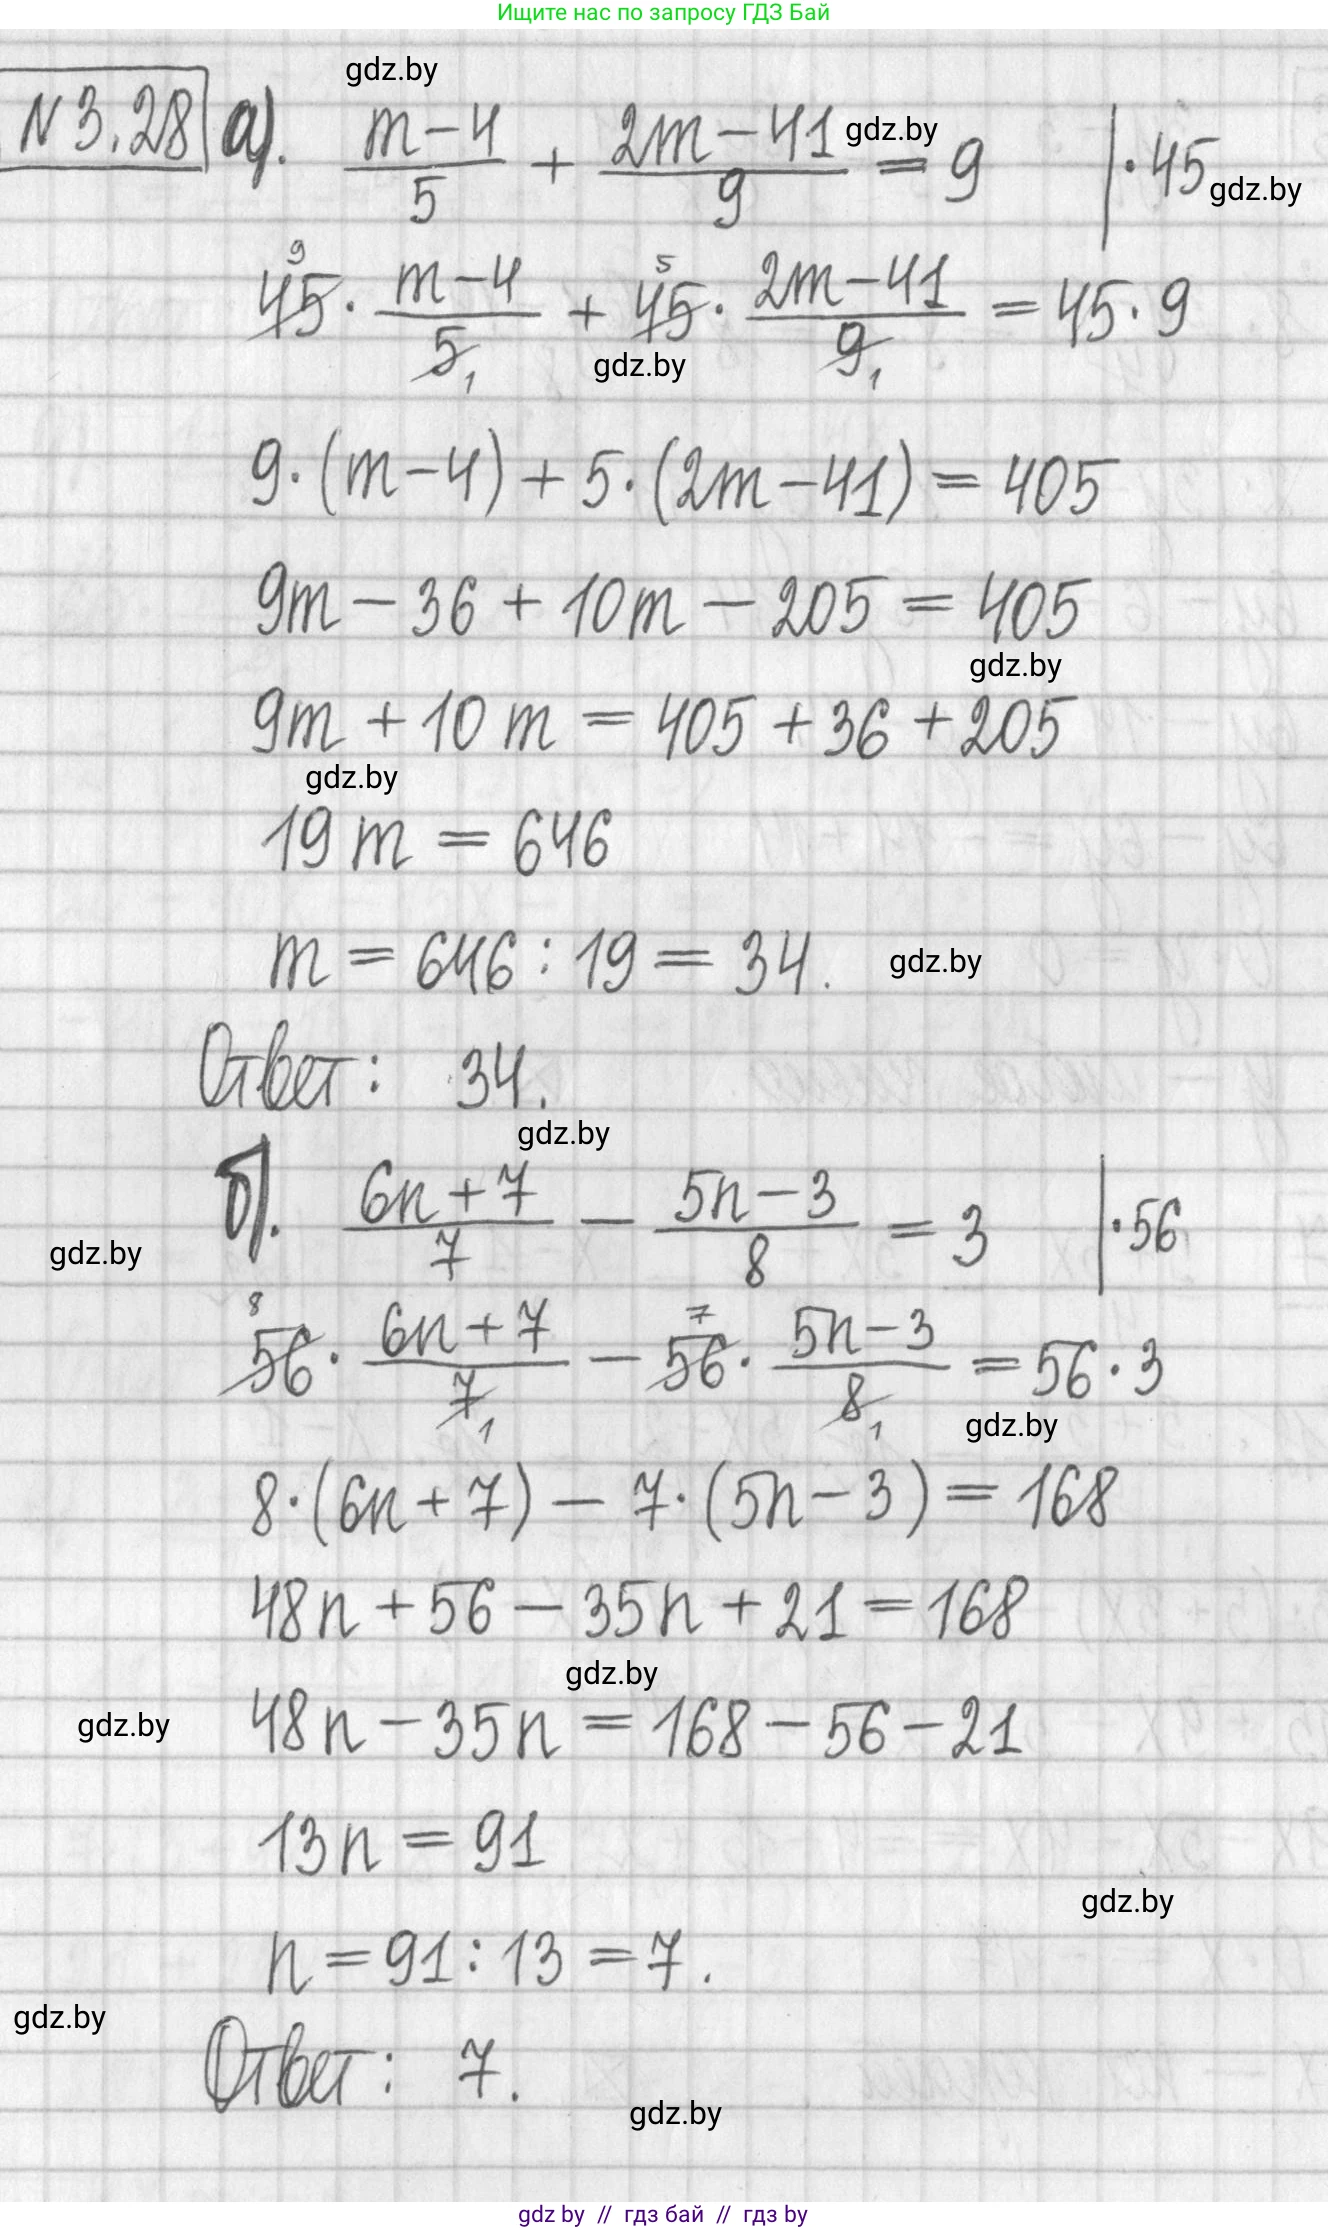 Ищите нас по запросу ГДЗ Бай
gdz.by
№3.28 а). (m-4)/5 + (2m-41)/9 = 9 | ·45
gdz.by
gdz.by
45⁹ · (m-4)/5₁ + 45⁵ · (2m-41)/9₁ = 45·9
gdz.by
9·(m-4)+5·(2m-41)=405
9m-36+10m-205=405
gdz.by
9m+10m=405+36+205
gdz.by
19m=646
m=646:19=34.
gdz.by
Ответ: 34.
gdz.by
б). (6n+7)/7 - (5n-3)/8 = 3 | ·56
gdz.by
56⁸ · (6n+7)/7₁ - 56⁷ · (5n-3)/8₁ = 56·3
gdz.by
8·(6n+7)-7·(5n-3)=168
48n+56-35n+21=168
gdz.by
gdz.by
48n-35n=168-56-21
13n=91
gdz.by
n=91:13=7.
gdz.by
Ответ: 7.
gdz.by
gdz by // гдз бай // гдз by